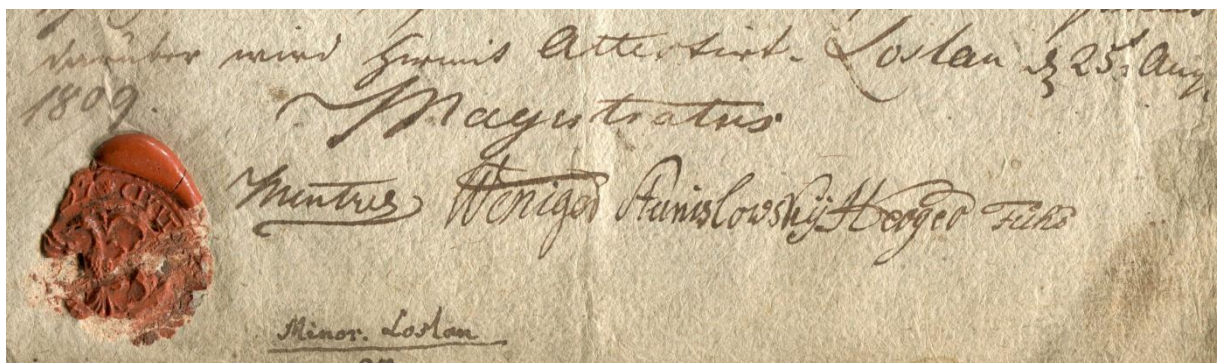 darüber wird hiermit Attestirt. Loslau d 25t. Aug.
1809.
Magistratus
Weniger Stanislowskÿ Herger Fuhs
Minor. Loslau